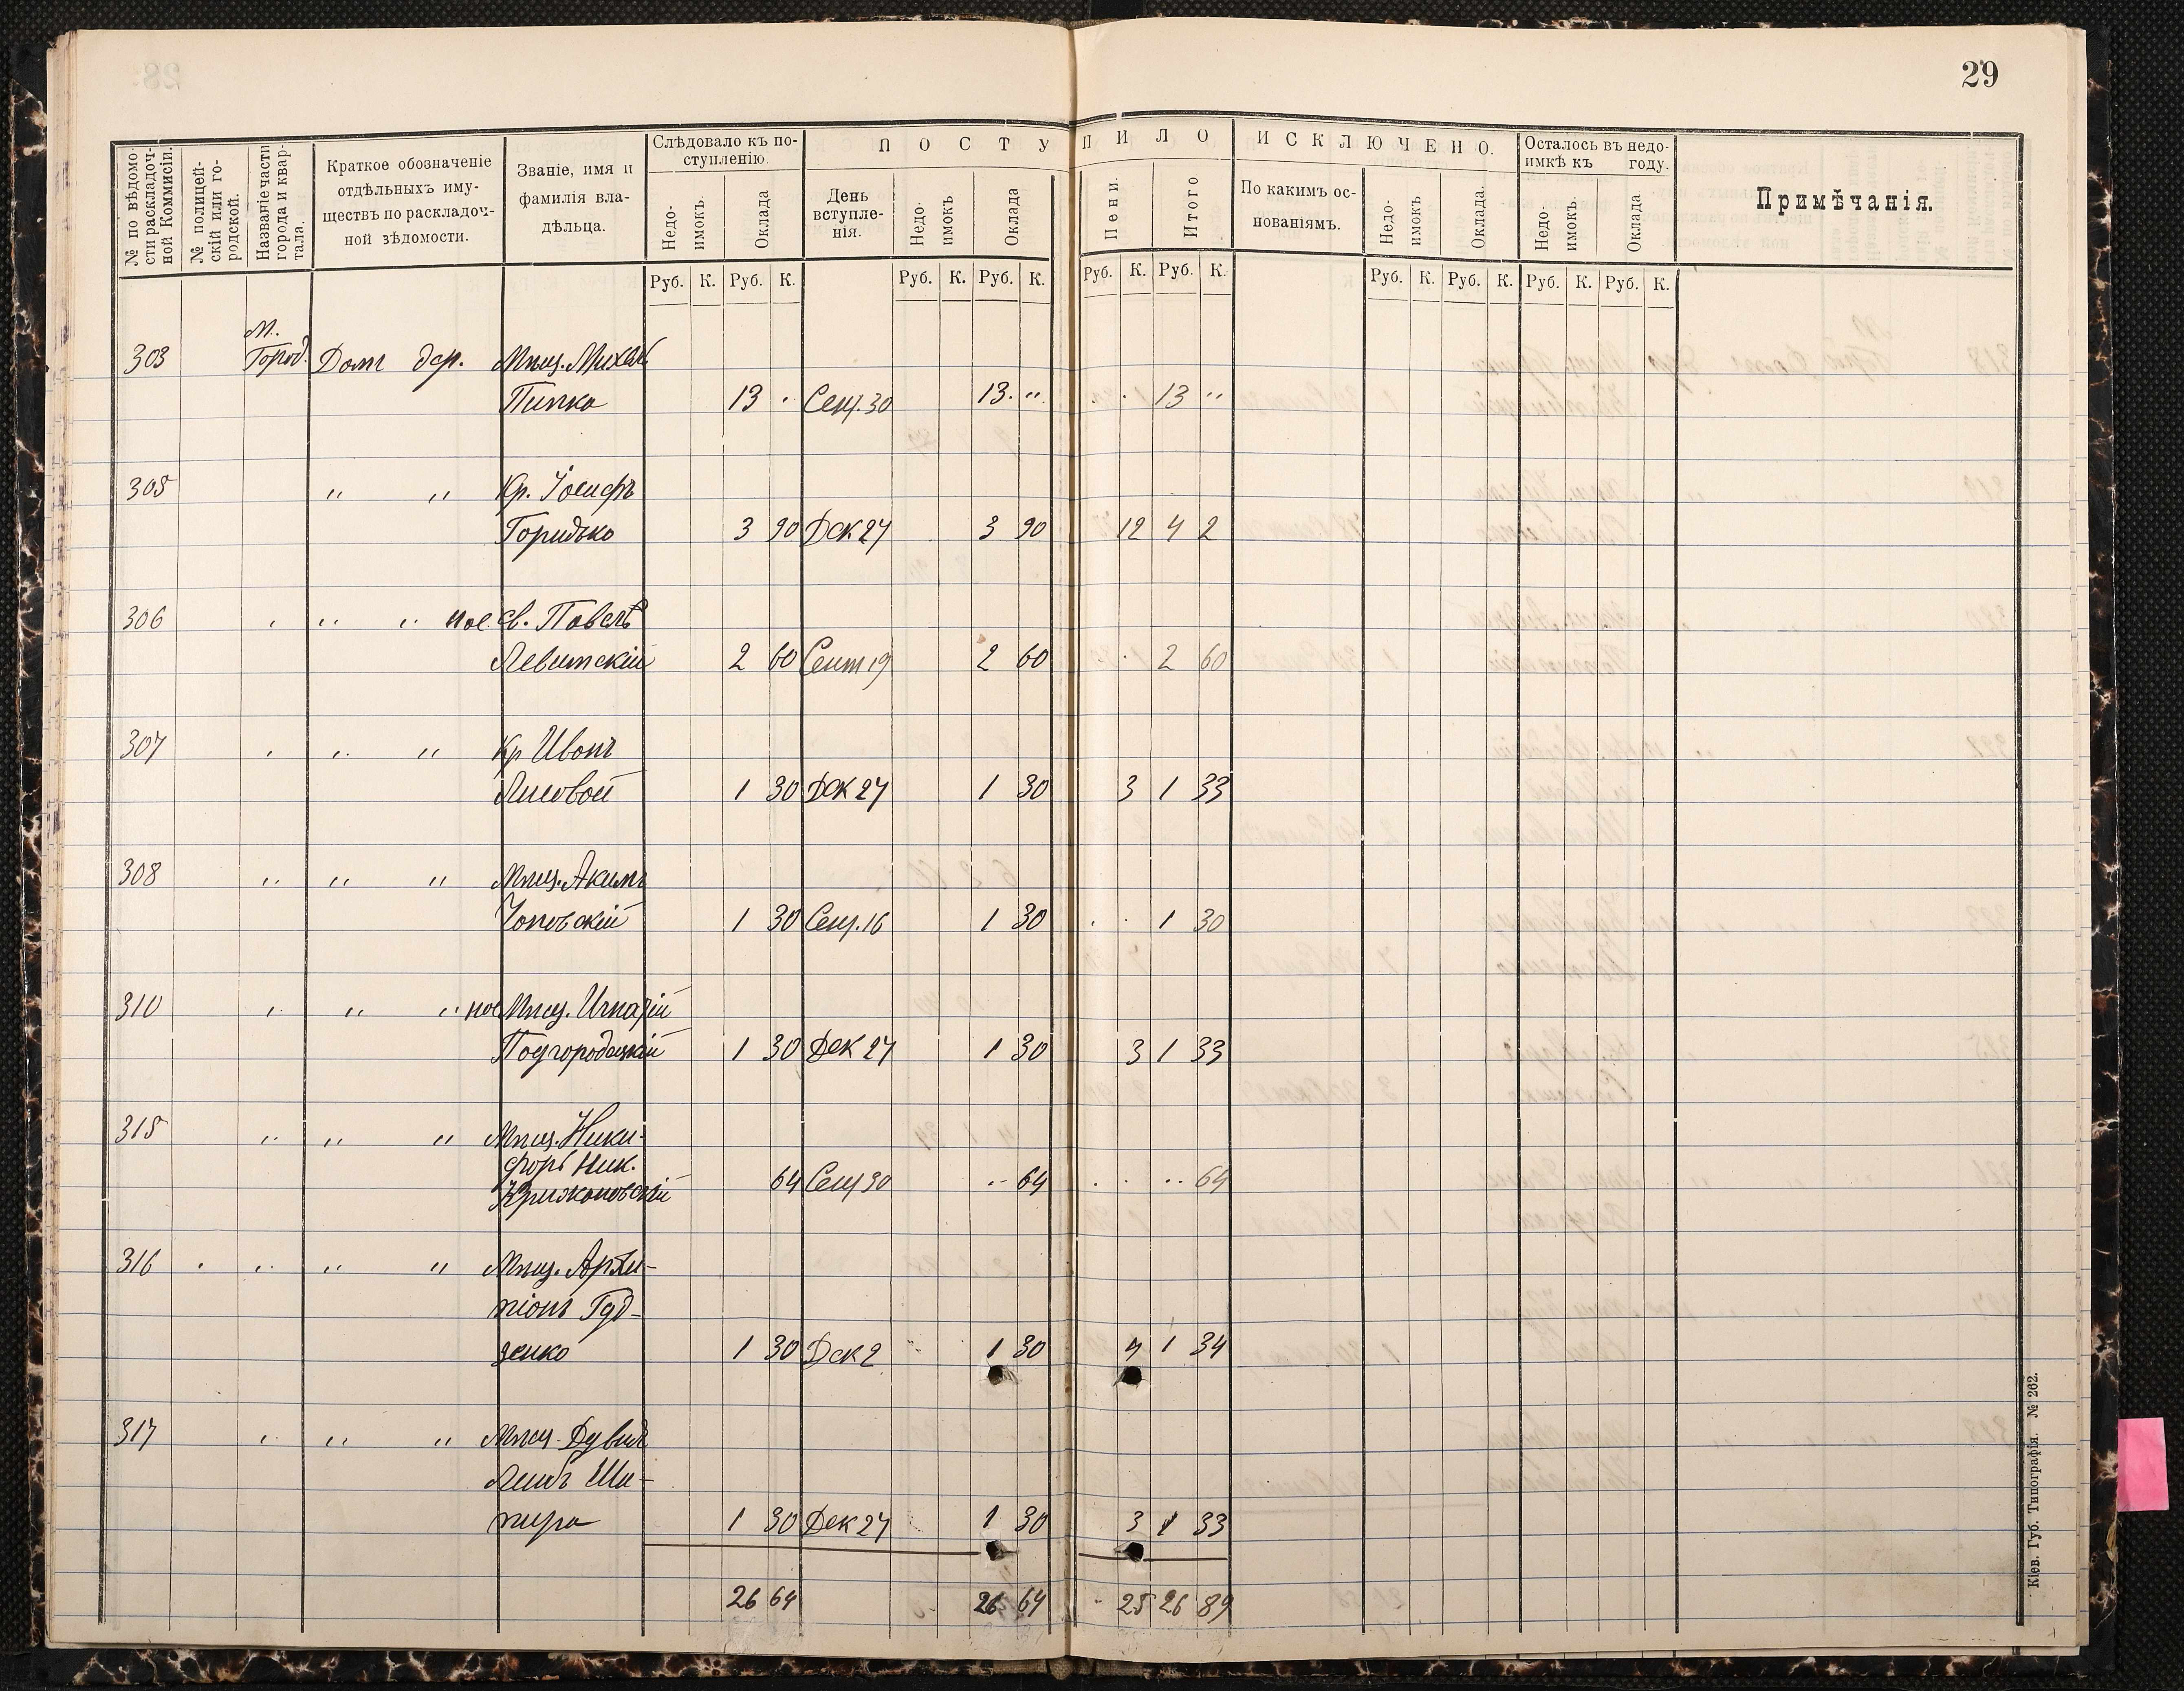 29
№ по вѣдомо- сти раскладоч- ной Коммисіи.
№ полицей- скій или го- родской.
Названіе части города и квар- тала.
Краткое обозначеніе отдѣльныхъ иму- ществъ по раскладоч- ной вѣдомости.
Званіе, имя и фамилія вла- дѣльца.
Слѣдовало къ по- ступленію.
Недо- имокъ.
Оклада
ПОСТУПИЛО
День вступле- нія.
Недо- имокъ
Оклада
Пени.
Итого
ИСКЛЮЧЕНО.
По какимъ ос- нованіямъ.
Недо- имокъ
Оклада.
Осталось въ недо- имкѣ къ году.
Недо- имокъ.
Оклада
Примѣчанія.
Руб. К. Руб. К. Руб. К. Руб. К. Руб. К. Руб. К. Руб. К. Руб. К. Руб. К. Руб. К.
М.
303 Город. Домъ дер. Мѣщ. Михаилъ
Пипка 13 " Сен. 30 13 " 13 "
305 " " Кр. Іосифъ
Горидько 3 90 Дек 27 3 90 12 4 2
306 " " " нас. св. Павелъ
Левитскій 2 60 Сент 19 2 60 2 60
307 " " " Кр Иванъ
Лисовой 1 30 Дек 27 1 30 3 1 33
308 " " " Мѣщ. Акимъ
1 30 Сен. 16 1 30 1 30
310 " " " нас Мѣщ. Игнатій
Подгородецкій 1 30 Дек 27 1 30 3 1 33
315 " " " Мѣщ. Ники-
форъ Ник.
Крижановскій 64 Сен 30 " 64 " 64
316 " " " Мѣщ. Архи-
піонъ Гуд-
зенко 1 30 Дек 2 1 30 4 1 34
317 " " " Мѣщ. Дувид
Лейбъ Ша-
пира 1 30 Дек 27 1 30 3 1 33
26 64 26 64 25 26 89
Кіев. Губ. Типографія. № 262.